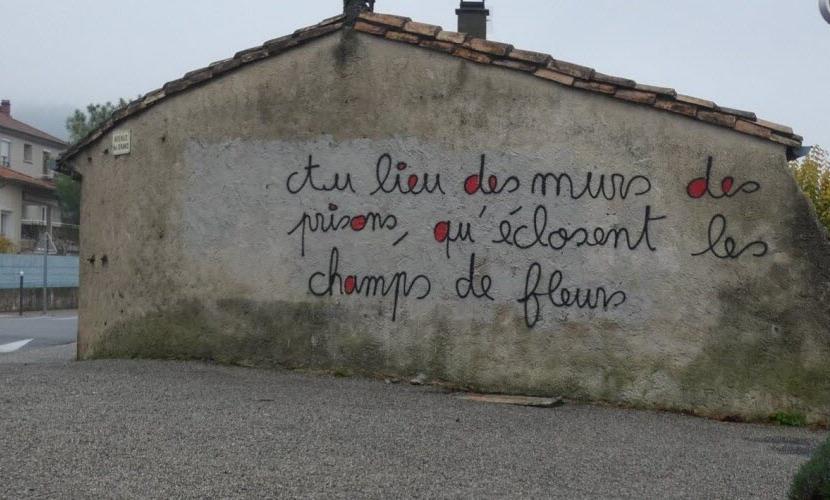 Au lieu des murs des
prisons, qu'éclosent les
champs de fleurs